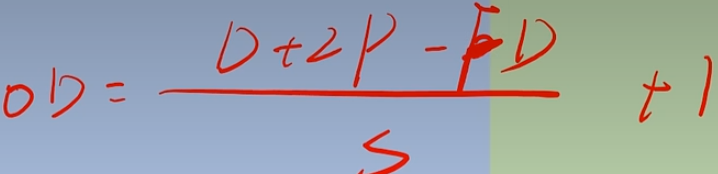 OD = (D + 2P - FD) / S + 1